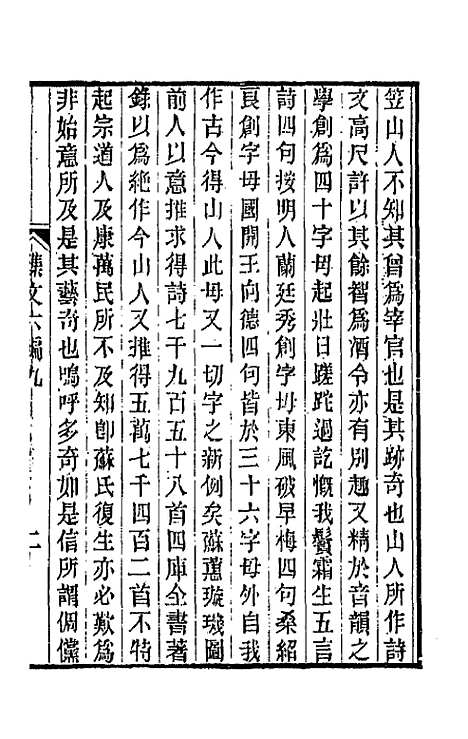 笠山人不知其曾爲宰官也是其跡奇也山人所作詩
文高尺許以其餘智爲酒令亦有別趣又精於音韻之
學創爲四十字母起壯日蹉跎過訖慨我鬢霜生五言
詩四句按明人蘭廷秀創字母東風破早梅四句桑紹
良創字母國開王向德四句皆於三十六字母外自我
作古今得山人此母又一切字之新例矣蘇蕙璇璣圖
前人以意推求得詩七千九百五十八首四庫全書著
錄以爲絶作今山人又推得五萬七千四百二首不特
起宗道人及康萬民所不及知卽蘇氏復生亦必歎爲
非始意所及是其藝奇也嗚呼多奇如是信所謂倜儻
襍文六編九
二